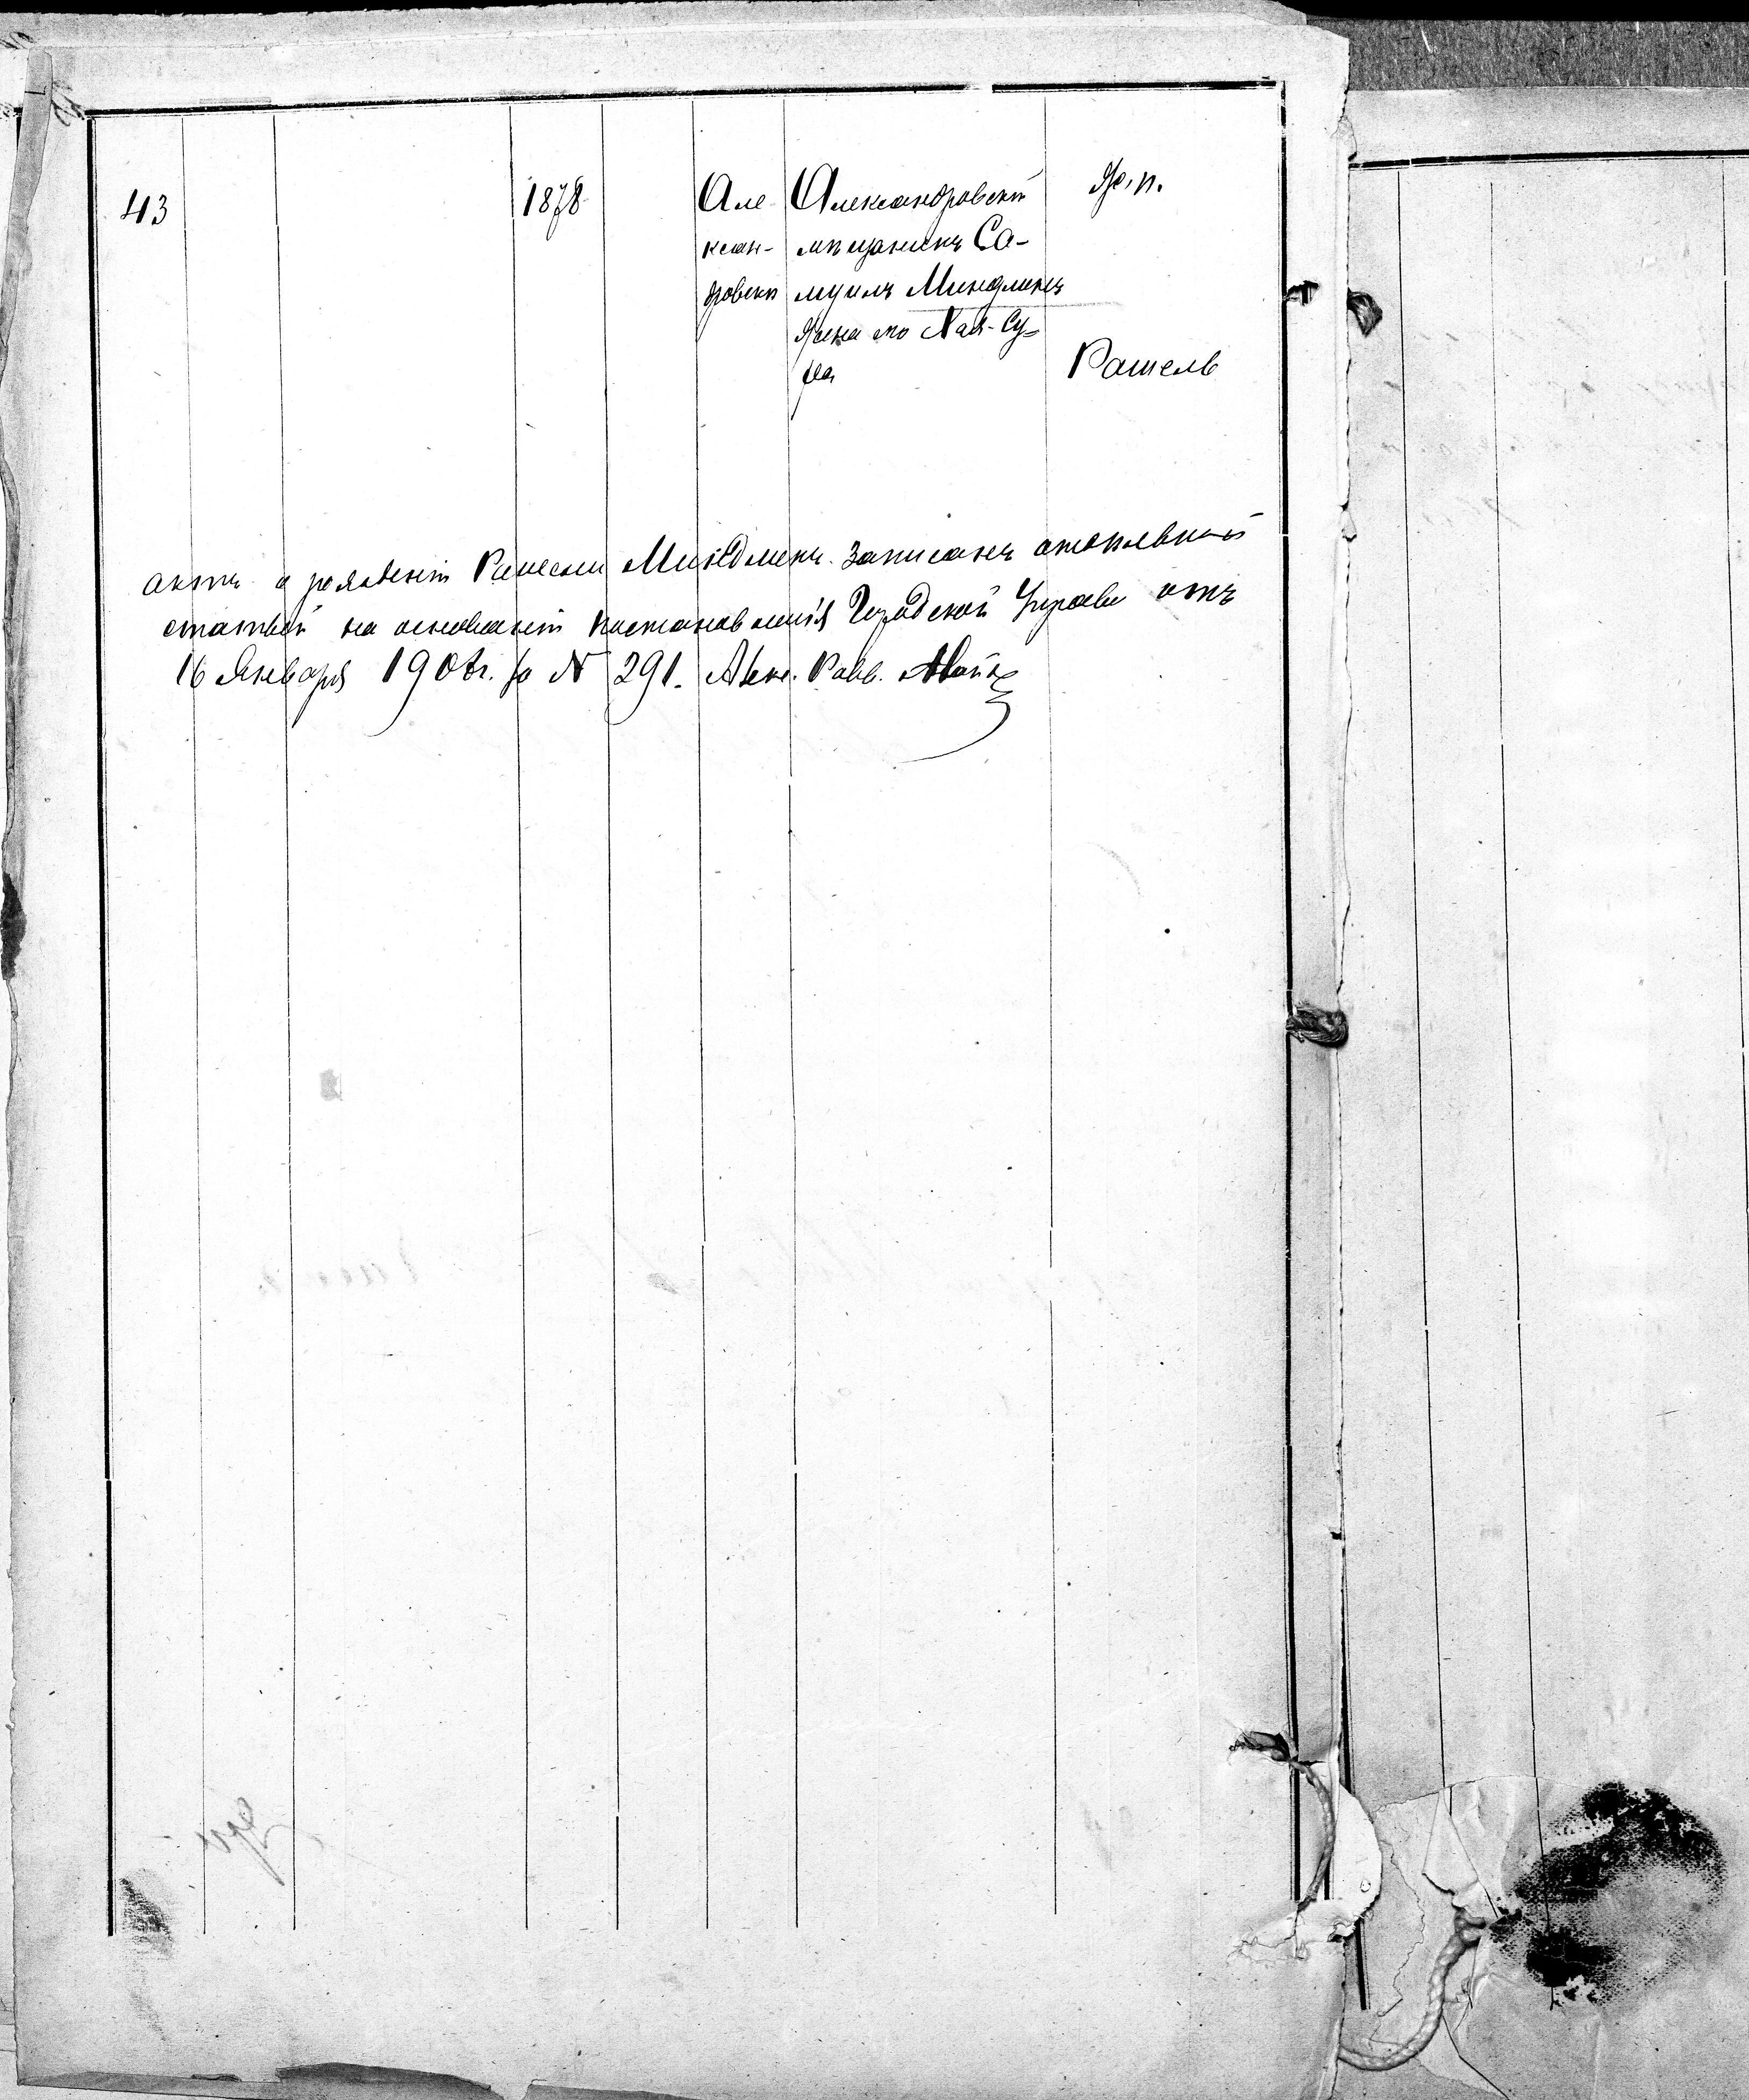 43
1878
Але
ксан-
дровскѣ
Александровскій
мѣщанинъ Са-
муилъ Миндлинъ
жена его Хая-Су-
ра
Ж. п.
Рашель
актъ о рожденіи Рашели Миндлинъ записанъ отдѣльной
статьей на основаніи постановленія Городской Управы отъ
16 Января 190 г. за N 291. Алек. Равв.